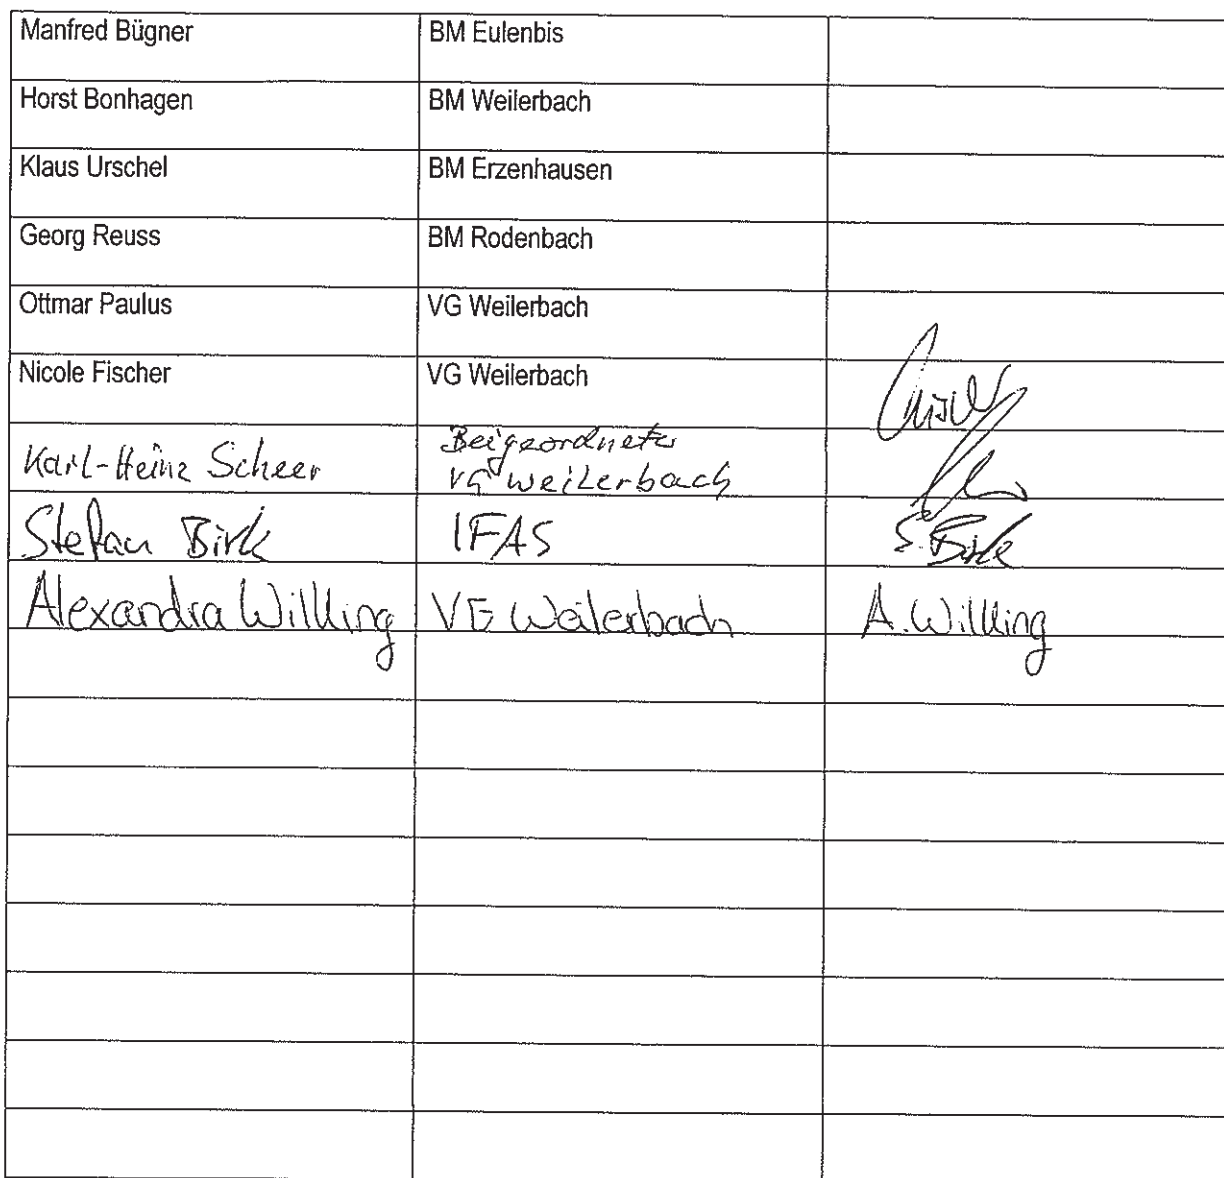 Manfred Bügner BM Eulenbis
Horst Bonhagen BM Weilerbach
Klaus Urschel BM Erzenhausen
Georg Reuss BM Rodenbach
Ottmar Paulus VG Weilerbach
Nicole Fischer VG Weilerbach
Karl-Heinz Scheer Beigeordneter
VG Weilerbach
Stefan Birk IFAS S. Birk
Alexandra Willing VG Weilerbach A. Willing